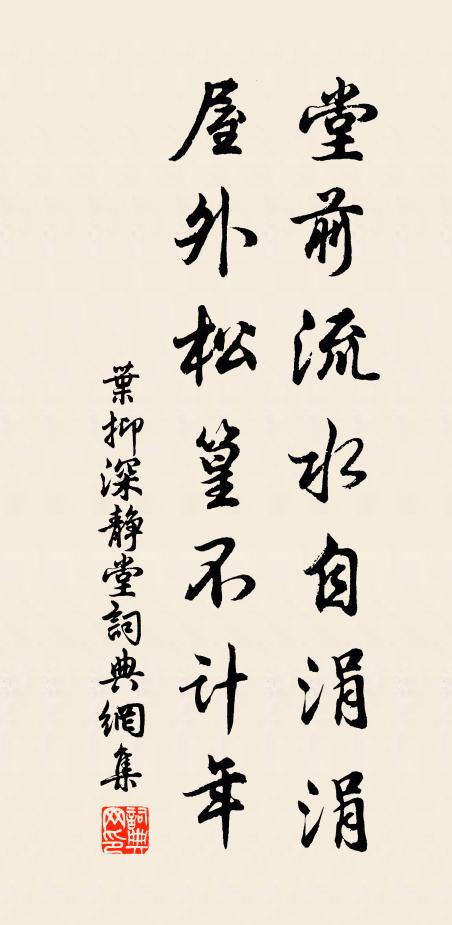 堂前流水自涓涓
屋外松篁不计年
葉抑深静堂詞典網集
詞典网印